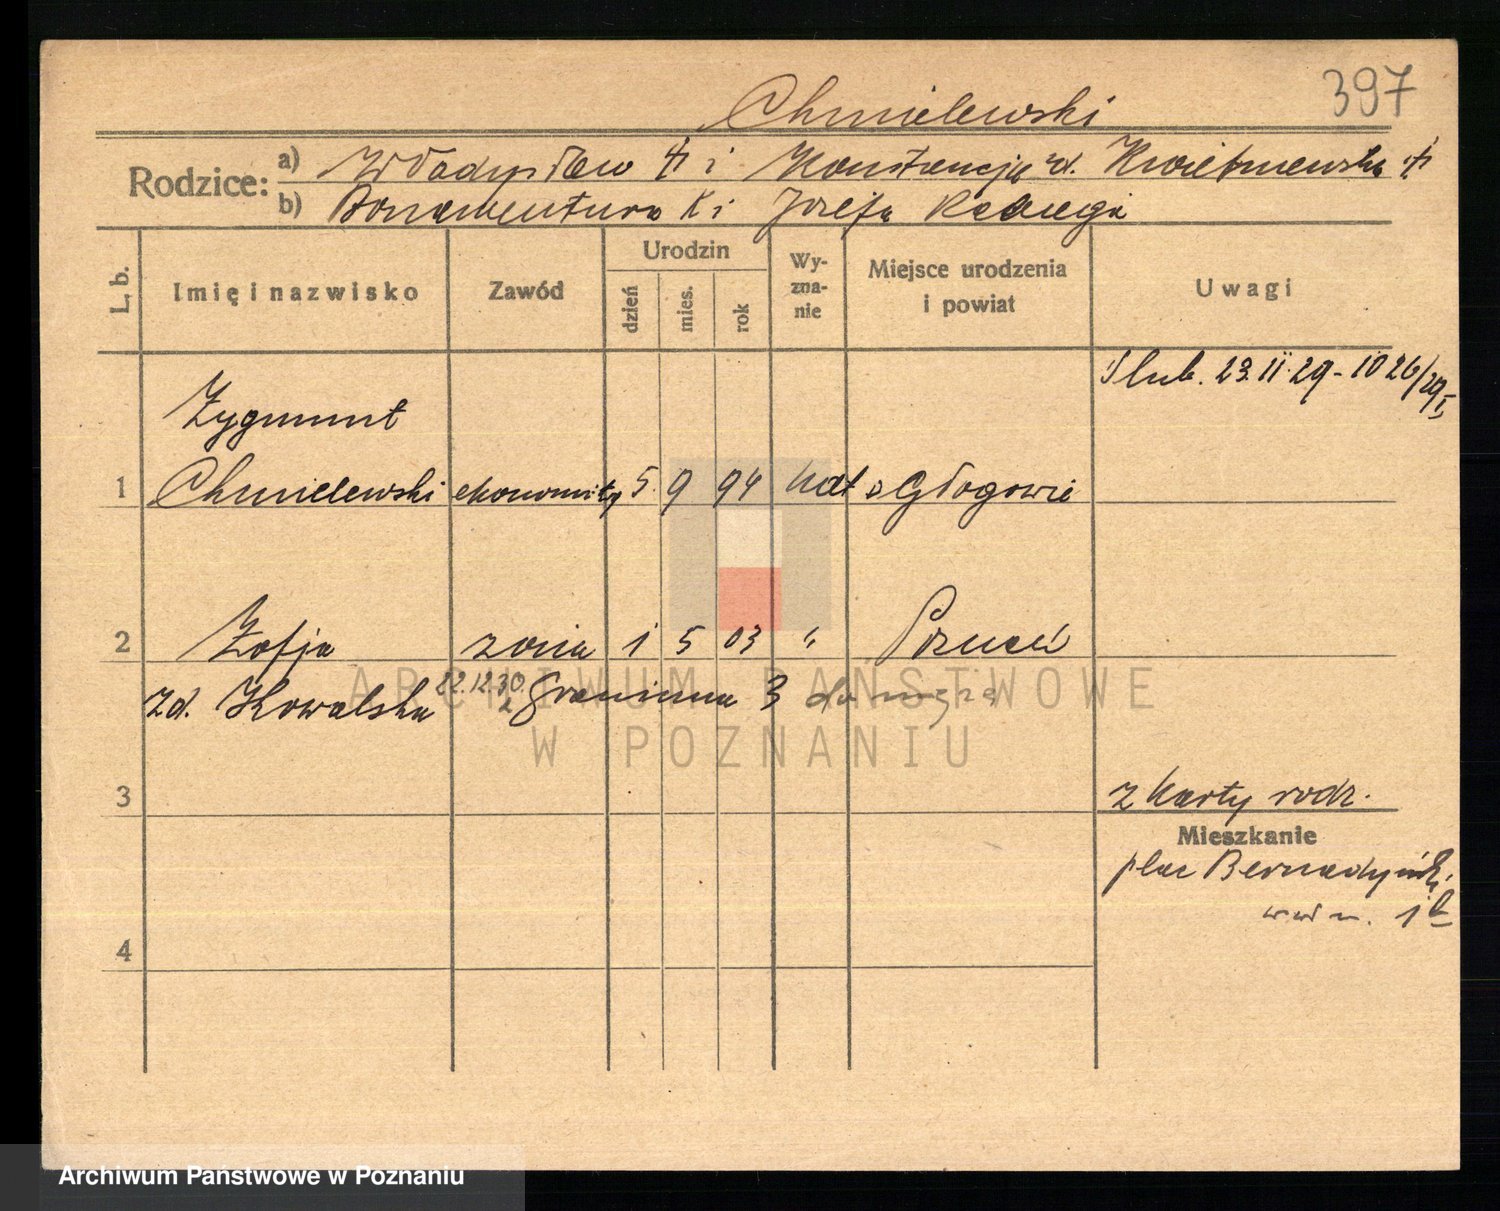 397
Chmielewski
Rodzice: a) Władysław † i Konstancja zd. Kwiatniewska †
b) Bonawentura K i Józefa
L. b.
Imię i nazwisko
Zawód
Urodzin
dzień
mies.
rok
Wy-
zna-
nie
Miejsce urodzenia
i powiat
Uwagi
Ślub. 23.II.29 - 1026/29
Zygmunt
1 Chmielewski ekonomista 5. 9 94 kat Głogowie
2 Zofja żona 1 5 03 " Poznań
zd. Kowalska 22.12.30. z Graniczna 3 do męża
3
z karty rodz.
Mieszkanie
plac Bernadyński
m. 1
4
ARCHIWUM PAŃSTWOWE
W POZNANIU
Archiwum Państwowe w Poznaniu